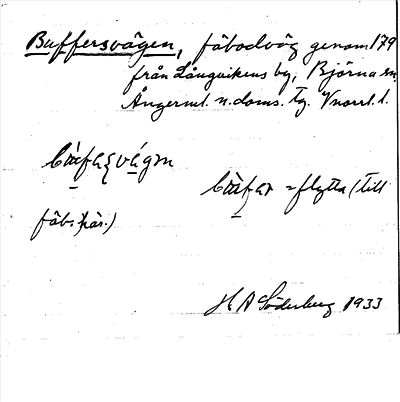 Buffersvägen, fäbodväg genom 179
från Långvikens by, Björna sn,
Ångerml. n. doms. tg. Vnorrl. l.
bùfa vágen
bùfar = flytta (till
fäb.)
H A Söderberg 1933